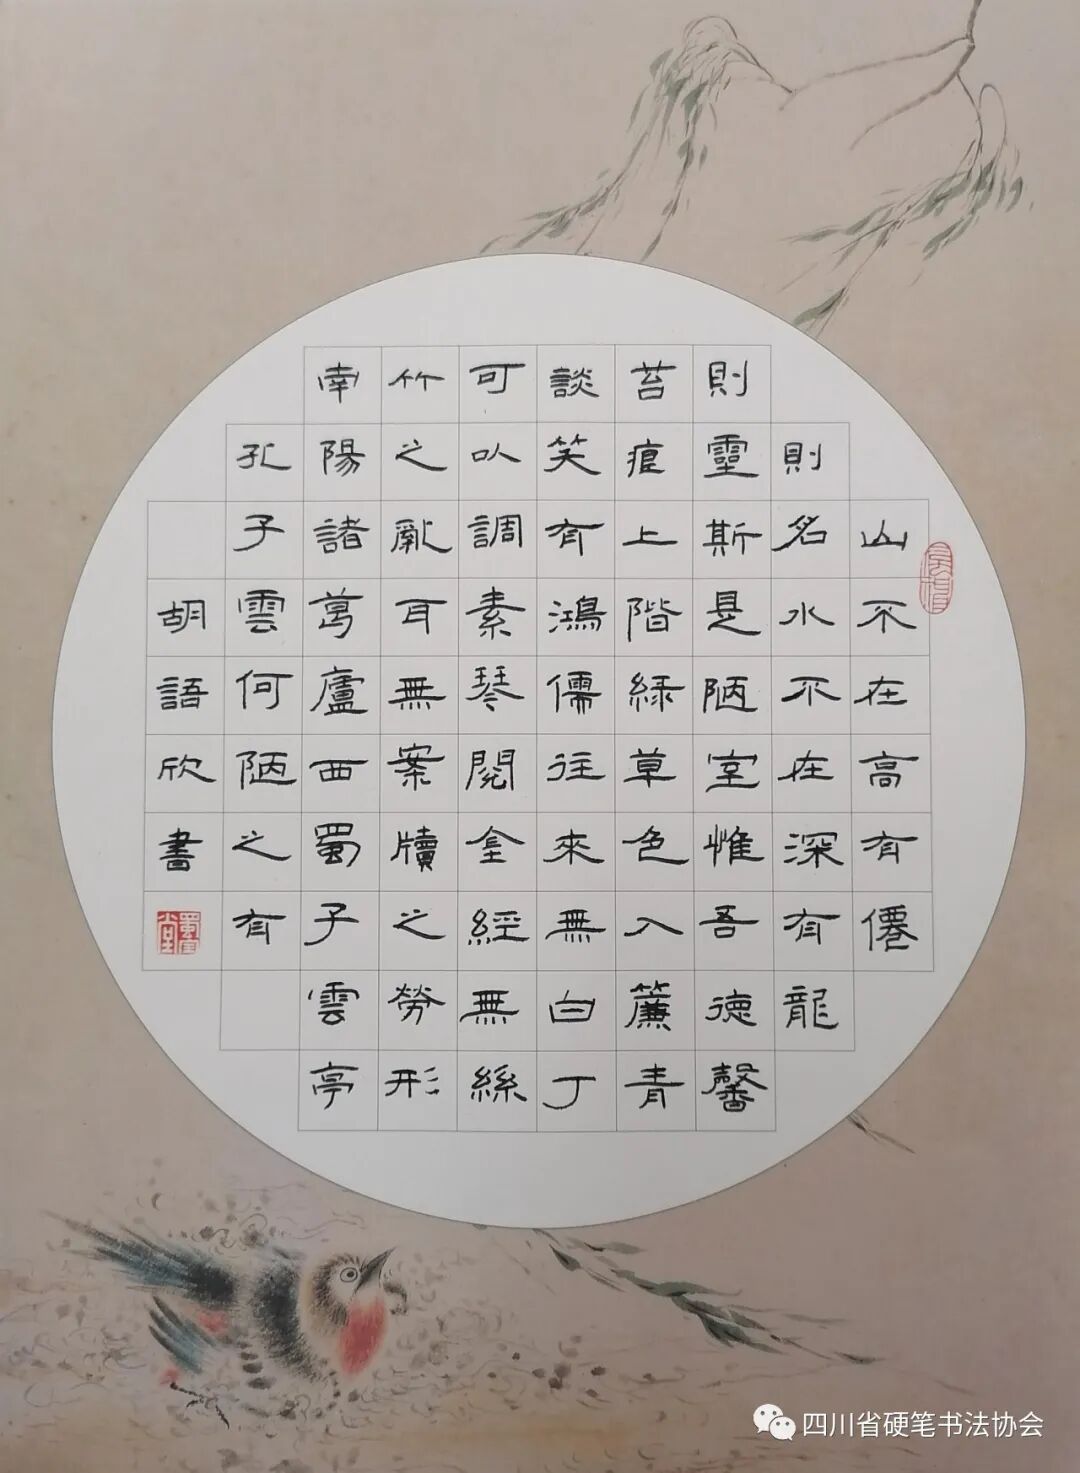 山不在高有僊
則名水不在深有龍
則靈斯是陋室惟吾德馨
苔痕上階緑草色入簾青
談笑有鴻儒往來無白丁
可以調素琴閱金經無絲
竹之亂耳無案牘之勞形
南陽諸葛廬西蜀子雲亭
孔子雲何陋之有
胡語欣書
四川省硬笔书法协会